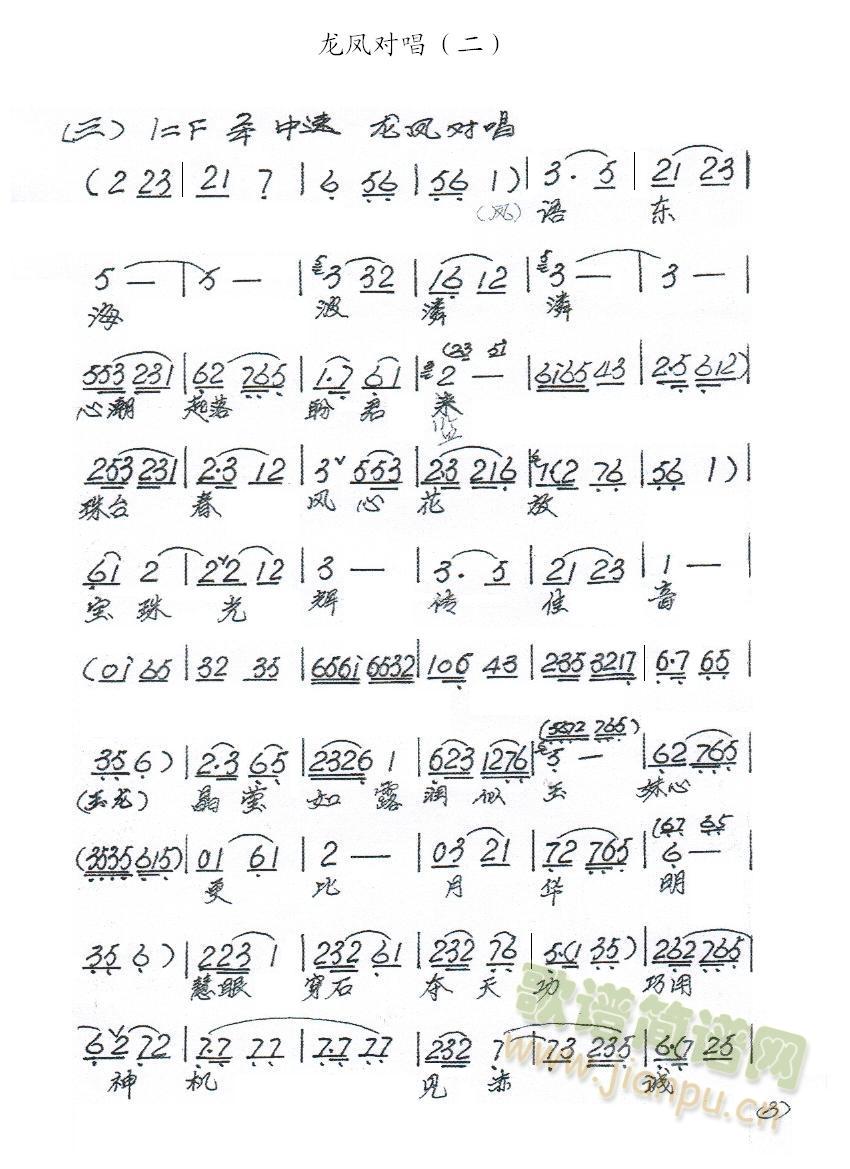 龙凤对唱（二）
（三）1=F 中速 龙凤对唱
(2 23 | 21 7 | 6 56 | 56 1) | 3. 5 | 21 23 |
（凤）语 东
5 — | 5 — | 3 32 | 16 12 | 3 — | 3 — |
海 波 潾 潾
553 231 | 62 765 | 1.7 61 | 2 — | 6i65 43 | 2.5 612) |
心潮 起落 盼君 来
253 231 | 2.3 12 | 3 553 | 2.3 216 | 7(2 76 | 56 1) |
珠台 春 风心 花 放
61 2 | 2 2 12 | 3 — | 3. 5 | 21 23 | 1 — |
宝珠 光 辉 传 佳 音
(0i 65 | 32 35 | 656i 6532 | 106 43 | 235 3217 | 6.7 65 |
(5672 765)
35 6) | 2.3 65 | 2326 1 | 623 1276 | 5 — | 62 765 |
（玉龙） 晶莹 如露 润似 玉 妹心
(67 35
(3535 615) | 01 61 | 2 — | 03 21 | 72 765 | 6 — |
更 比 月 华 明
35 6) | 223 1 | 232 61 | 232 76 | 5.(1 35) | 262 765 |
慧眼 穿石 夺天 功 巧用
62 72 | 7.7 77 | 7.7 77 | 232 7 | 73 235 | 6.(7 25 |
神 机 见 赤 诚
歌谱简谱网
www.jianpu.cn
(3)